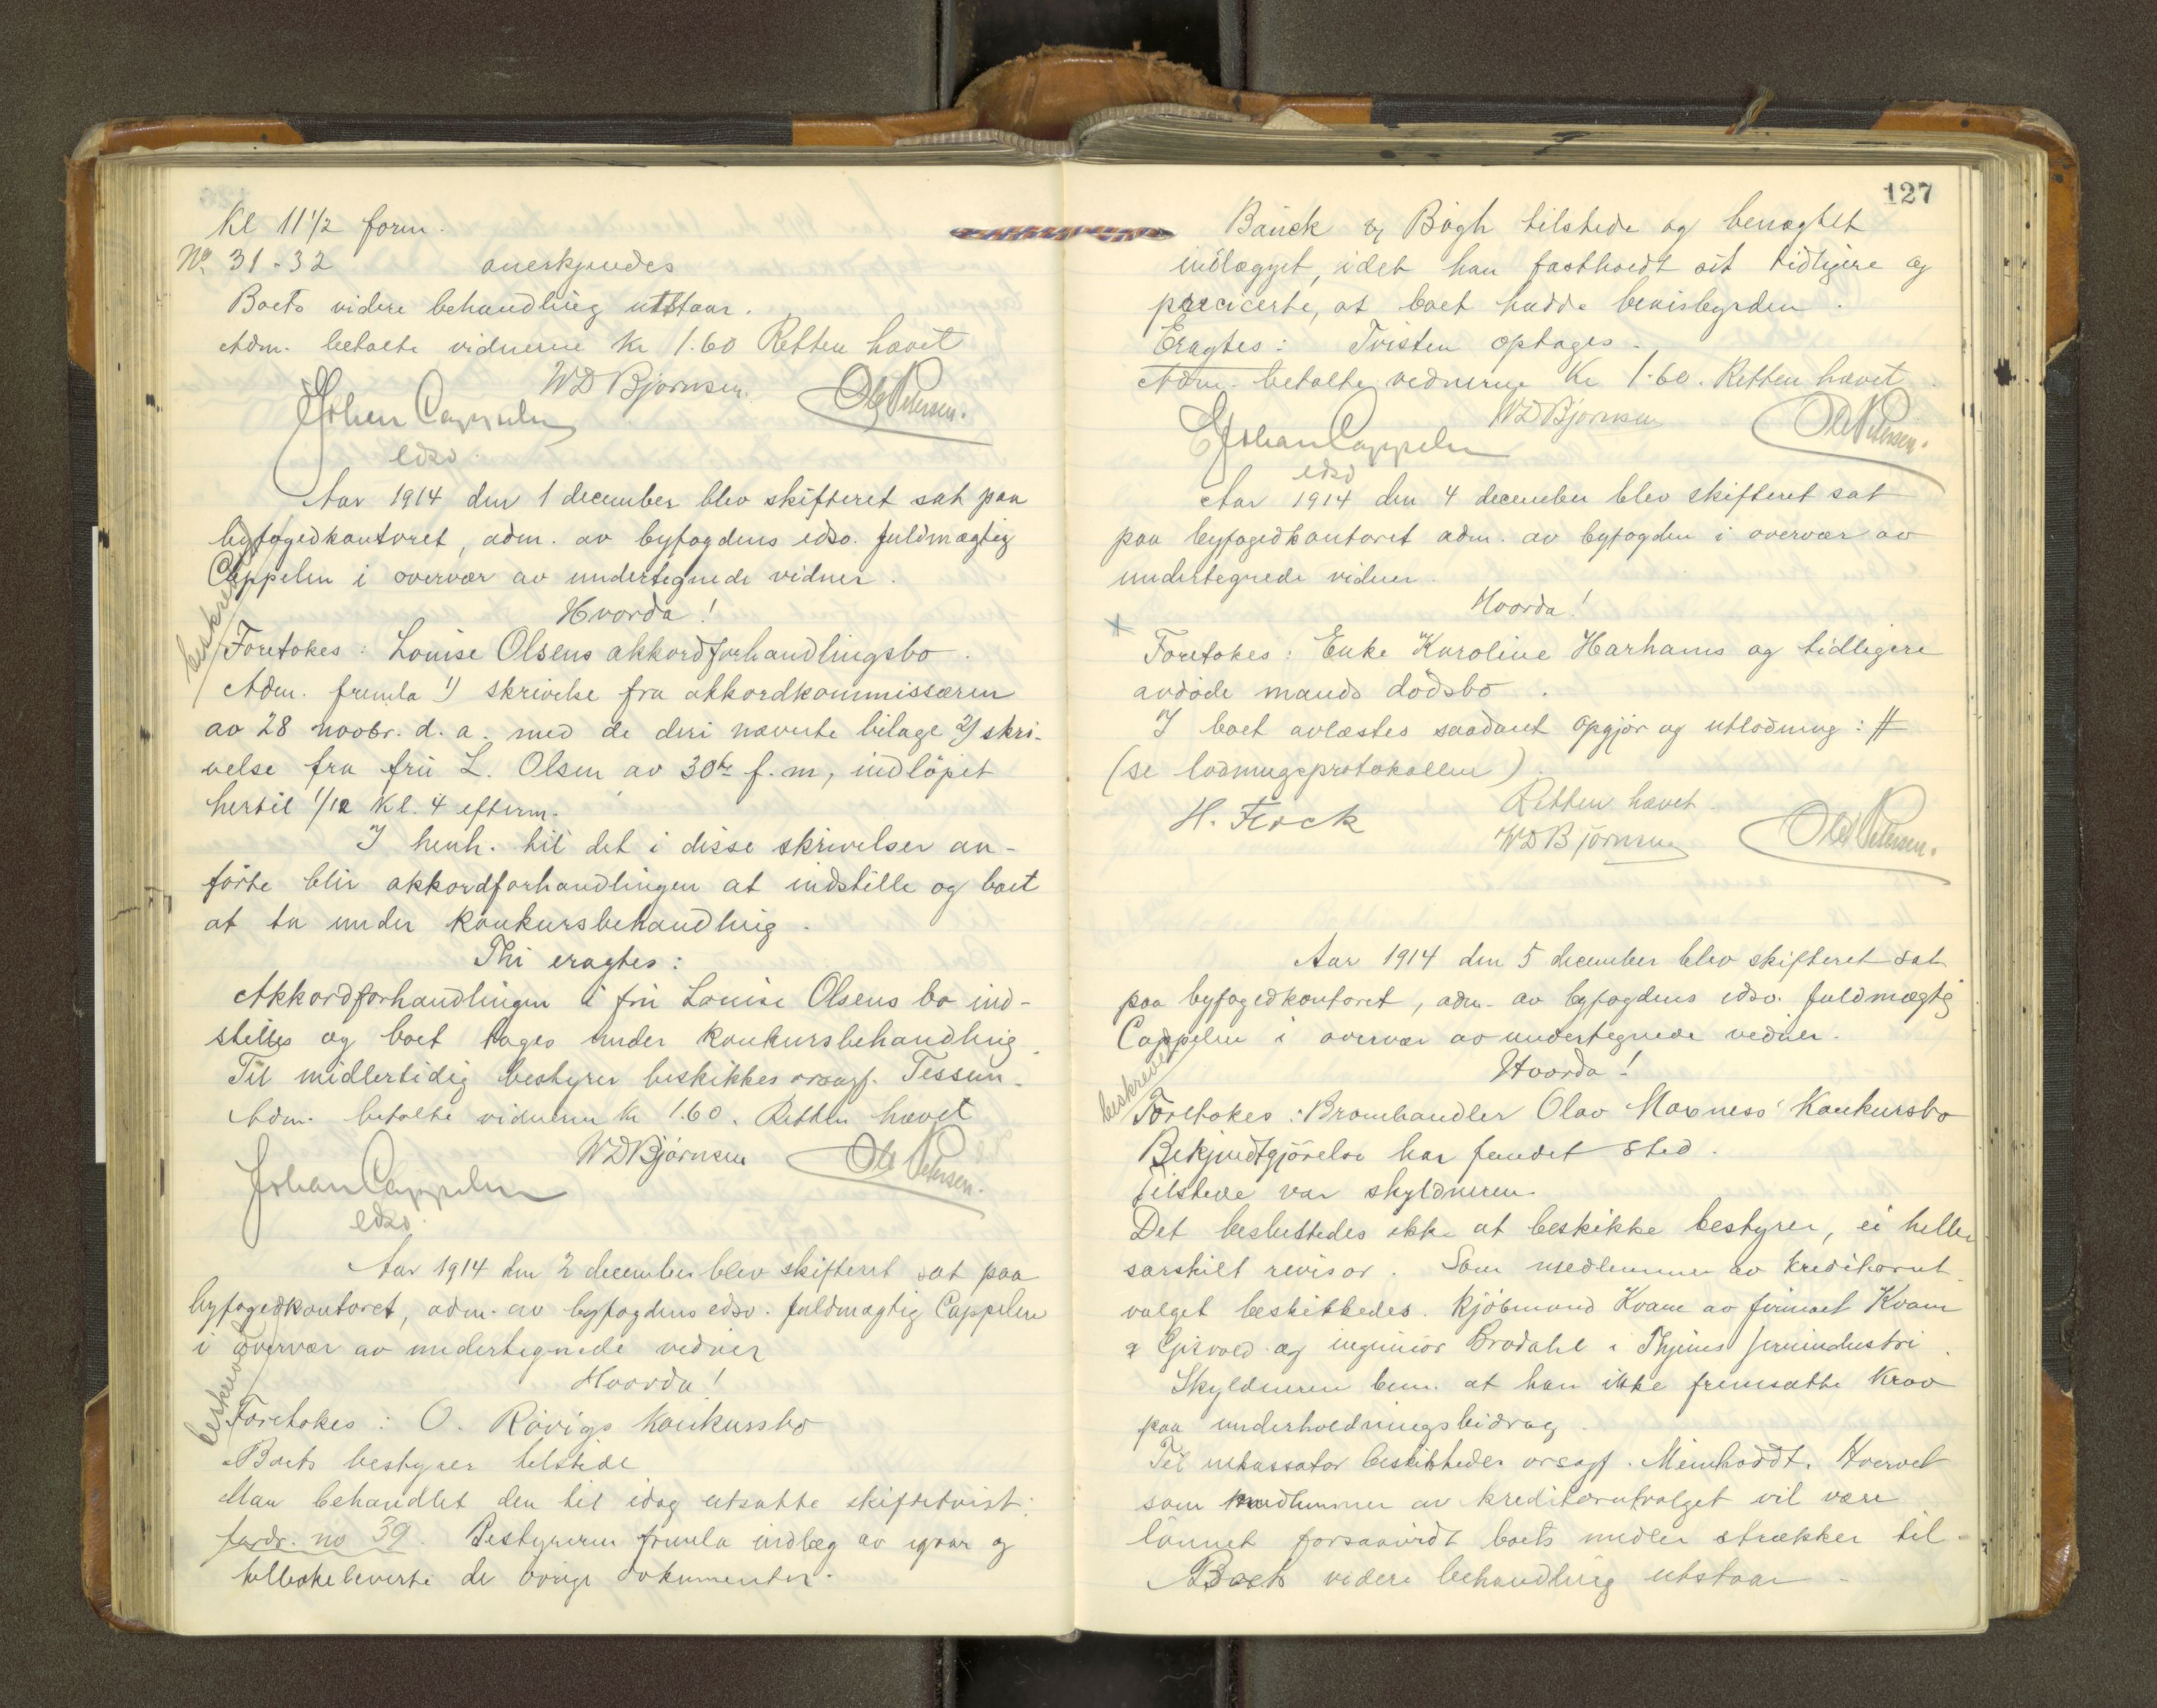 Kl 11 1/2 form.
No. 31-32 anerkjendes
Boets videre behandling utstaar.
Adm. betalte vidnerne Kr 1.60 Retten hævet
WD Bjørnsen. Ole Petersen.
Johan Cappelen
edsv.
Aar 1914 den 1 december blev skifteret sat paa
byfogedkontoret, adm. av byfogdens edsv. fuldmægtig
Cappelen i overvær av undertegnede vidner.
Hvorda!
beskrevet
Foretokes: Louise Olsens akkordforhandlingsbo.
Adm. fremla 1) skrivelse fra akkordkommissæren
av 28 novbr. d. a. med de deri nævnte bilage 2) skri-
velse fra fru L. Olsen av 30te f. m, indløpet
hertil 1/12 Kl. 4 efterm.
I henh. til det i disse skrivelser an-
førte blir akkordforhandlingen at indstille og boet
at ta under konkursbehandling.
Thi eragtes:
Akkordforhandlingen i fru Louise Olsens bo ind-
stilles og boet tages under konkursbehandling.
Til midlertidig bestyrer beskikkes orsagf. Tessem.
Adm. betalte vidnerne Kr 1.60. Retten hævet
WD Bjørnsen Ole Petersen.
Johan Cappelen
edsv.
Aar 1914 den 2 december blev skifteret sat paa
byfogedkontoret, adm. av byfogdens edsv. fuldmægtig Cappelen
i overvær av undertegnede vidner
Hvorda!
beskrevet
Foretokes: O. Røvigs konkursbo
Boets bestyrer tilstede
Man behandlet den til idag utsatte skiftetvist:
fordr. no 39. Bestyreren fremla indlæg av igaar og
tilbakeleverte de øvrige dokumenter.
127
Bauck og Bøgh tilstede og benægtet
indlægget, idet han fastholdt sit tidligere og
præcicerte, at boet hadde bevisbyrden.
Eragtes: Tvisten optages.
Adm. betalte vidnerne Kr 1.60. Retten hævet.
WD Bjørnsen Ole Petersen.
Johan Cappelen
edsv
Aar 1914 den 4 december blev skifteret sat
paa byfogedkontoret adm. av byfogden i overvær av
undertegnede vidner.
Hvorda!
Foretokes: Enke Karoline Harhams og tidligere
avdøde mands dødsbo.
I boet avlæstes saadant opgjør og utlodning: #
(se lodningsprotokollen).
Retten hævet.
H. Flock WD Bjørnsen Ole Petersen.
Aar 1914 den 5 december blev skifteret sat
paa byfogedkontoret, adm. av byfogdens edsv. fuldmægtig
Cappelen i overvær av undertegnede vidner.
Hvorda!
beskrevet
Foretokes: Olav Moxness' Konkursbo
Bekjendtgjørelse har fundet sted.
Tilstede var skyldneren.
Det besluttedes ikke at beskikke bestyrer, ei heller
særskilt revisor. Som medlemmer av kreditorut-
valget beskikkedes. Kjøbmand Kvam av firmaet Kvam
& og ingeniør Brodahl i jernindustri.
Skyldneren bem. at han ikke fremsatte krav
paa underholdningsbidrag.
Til inkassator beskikkedes orsagf. Meinhardt. Hvervet
som medlemmer av kreditorutvalget vil være
lønnet forsaavidt boets midler strækker til.
Boets videre behandling utstaar.